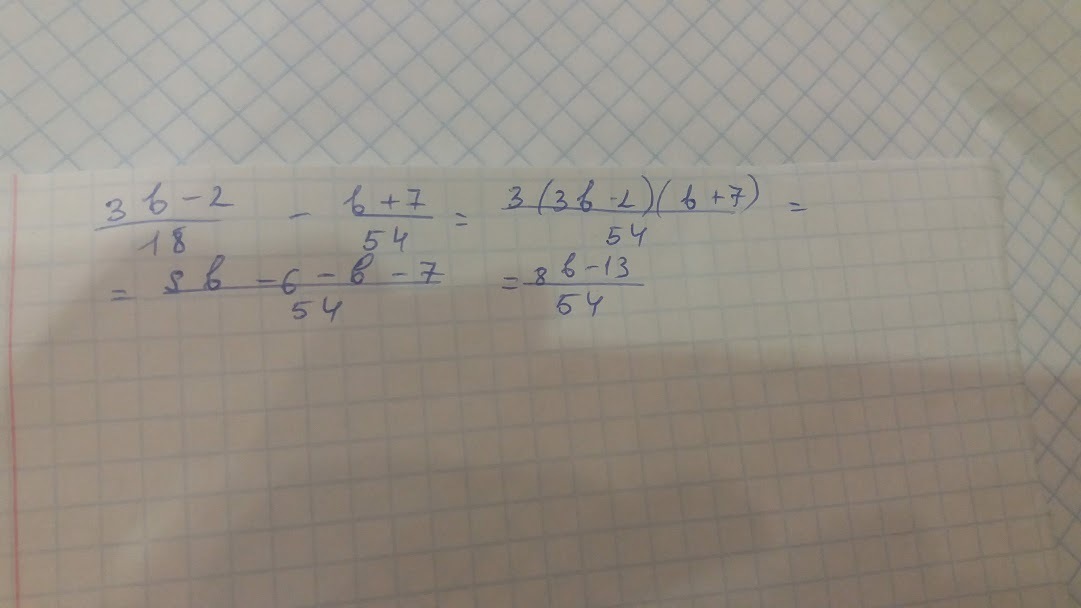 3b-2/18 - b+7/54 = 3(3b-2)(b+7)/54 =
= 9b-6-b-7/54 = 8b-13/54